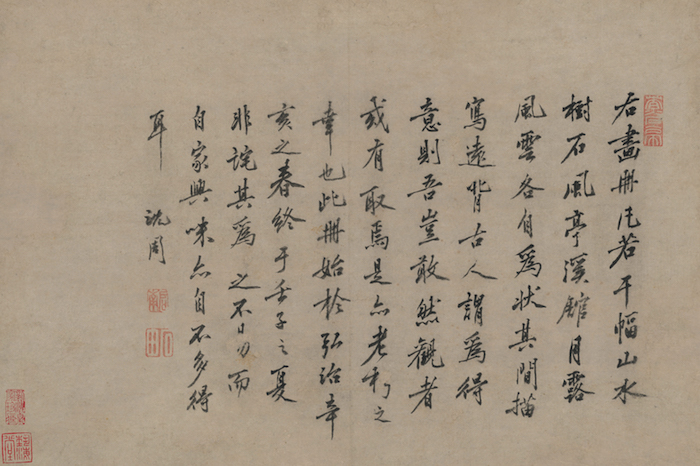 右畫册凡若干幅山水
樹石風亭溪館月露
風雲各自為狀其間描
寫遠背古人謂為得
意則吾豈敢然觀者
或有取焉是亦老朽之
幸也此册始於弘治辛
亥之春終于壬子之夏
非詫其為之不日力而
自家興味亦自不多得
耳
沈周